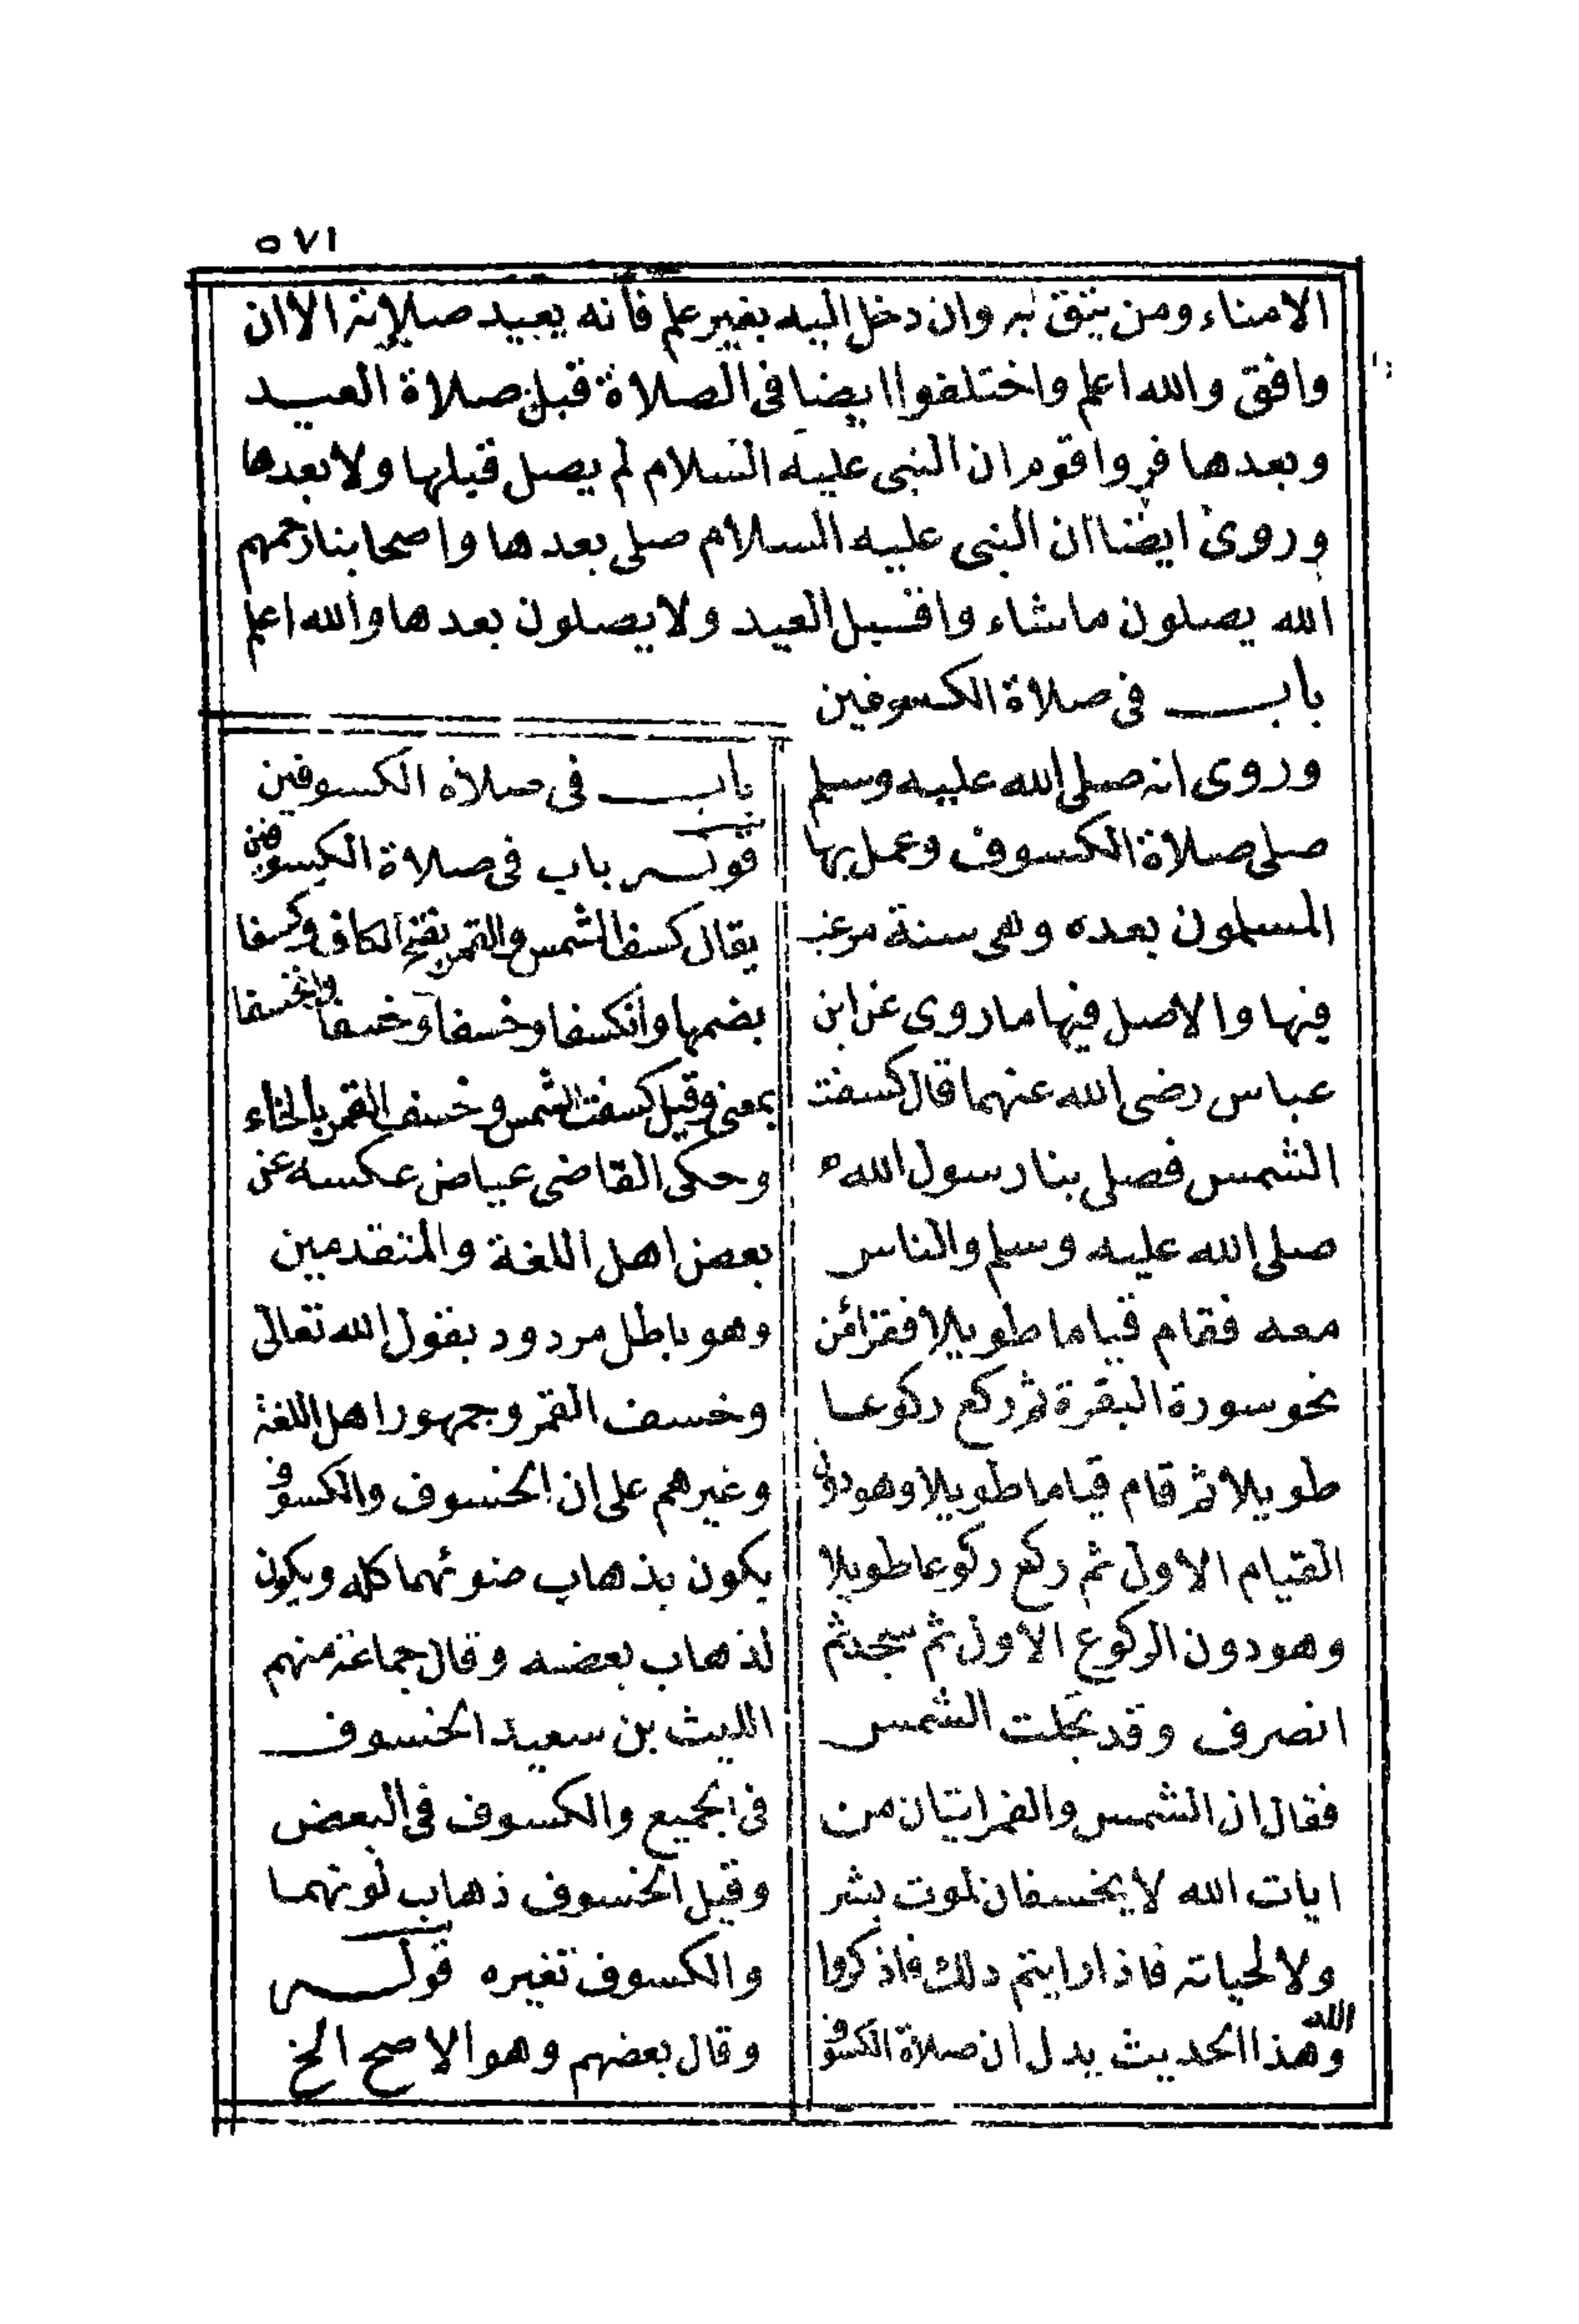 ٥٧١
الامناء ومن يتق به وان دخل اليه بغير علم فأنه يعيد صلاته الا ان
وافق والله اعلم واختلفوا ايضا فى الصلاة قبل صلاة العيد
وبعدها فروا قوم ان النبى عليه السلام لم يصل قبلها ولا بعدها
وروى ايضا ان النبى عليه السلام صلى بعدها واصحابنا رحمهم
الله يصلون ماشاء وا قبل العيد ولا يصلون بعدها والله اعلم
باب فى صلاة الكسوفين
وروى انه صلى الله عليه وسلم
صلى صلاة الكسوف وعمل بها
المسلمون بعده وهى سنة مرغب
فيها والاصل فيها ماروى عن ابن
عباس رضى الله عنهما قال كسفت
الشمس فصلى بنا رسول الله
صلى الله عليه وسلم والناس
معه فقام قياما طويلا فقرا من
نحو سورة البقرة ثم ركع ركوعا
طويلا ثم قام قياما طويلا وهو دون
القيام الاول ثم ركع ركوعا طويلا
وهو دون الركوع الاول ثم سجد ثم
انصرف وقد تجلت الشمس
فقال ان الشمس والقمر ايتان من
ايات الله لا يخسفان لموت بشر
ولا لحياته فاذا رايتم ذلك فاذكروا
الله
وهذا الحديث يدل ان صلاة الكسوف
باب فى صلاة الكسوفين
قوله باب فى صلاة الكسوفين
يقال كسفا الشمس والقمر بفتح الكاف وكسفا
بضمها وانكسفا وخسفا وخسفا وانخسفا
بمعنى وقيل كسفت الشمس وخسف القمر بالخاء
وحكى القاضى عياض عكسه عن
بعض اهل اللغة والمتقدمين
وهو باطل مردود بقول الله تعالى
وخسف القمر وجمهور اهل اللغة
وغيرهم على ان الخسوف والكسوف
يكون بذهاب ضوئهما كله ويكون
لذهاب بعضه وقال جماعة منهم
الليث بن سعيد الخسوف
فى الجميع والكسوف فى البعض
وقيل الخسوف ذهاب لونهما
والكسوف تغيره قوله
وقال بعضهم وهو الاصح الخ